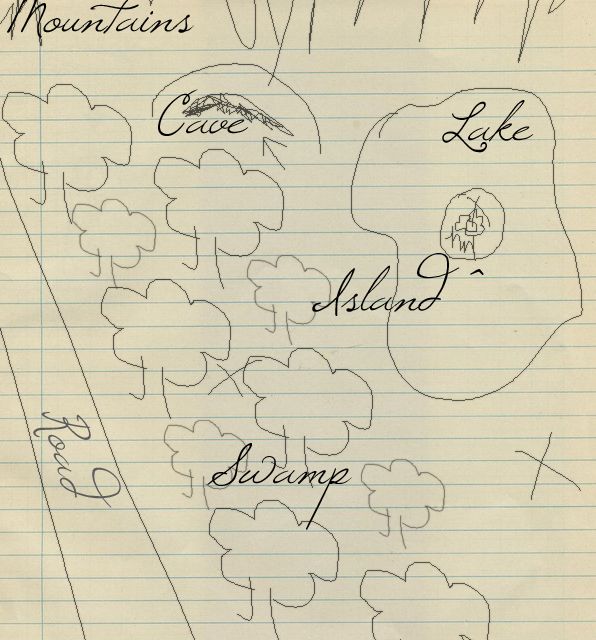 Mountains
Cave
Lake
Island
Road
Swamp